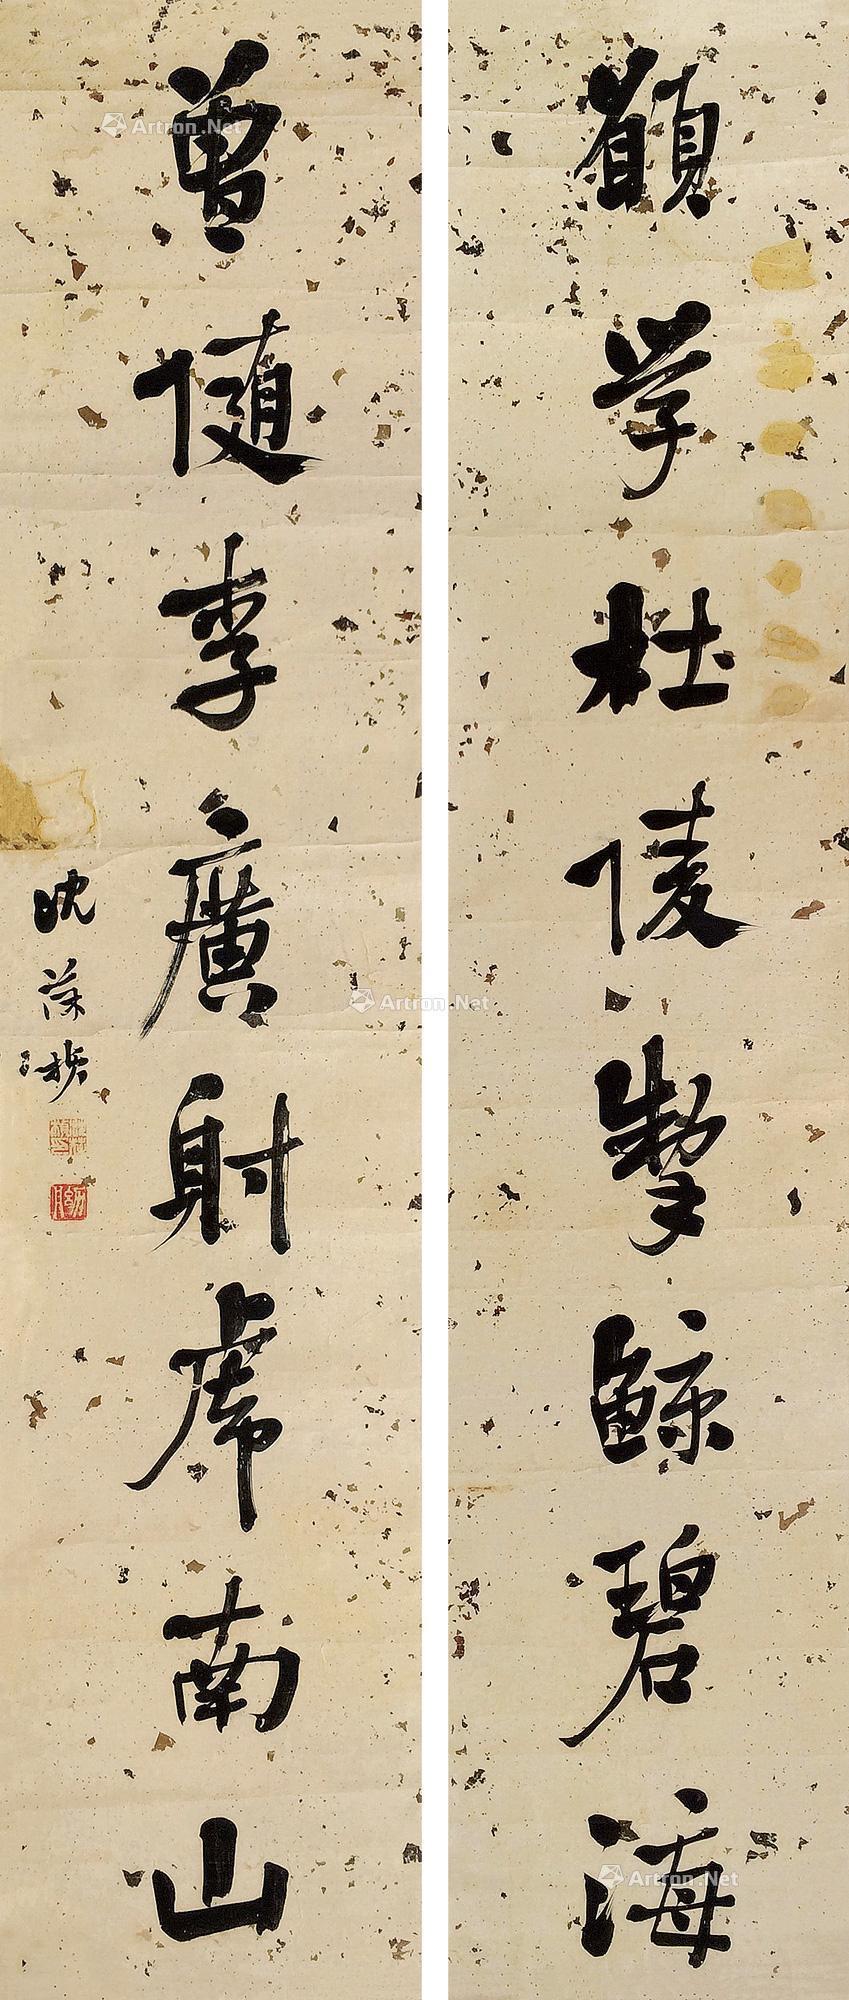 顧学杜陵掣鲸碧海
曾随李廣射虎南山
沈葆桢
Artron.Net
Artron.Net
Artron.Net